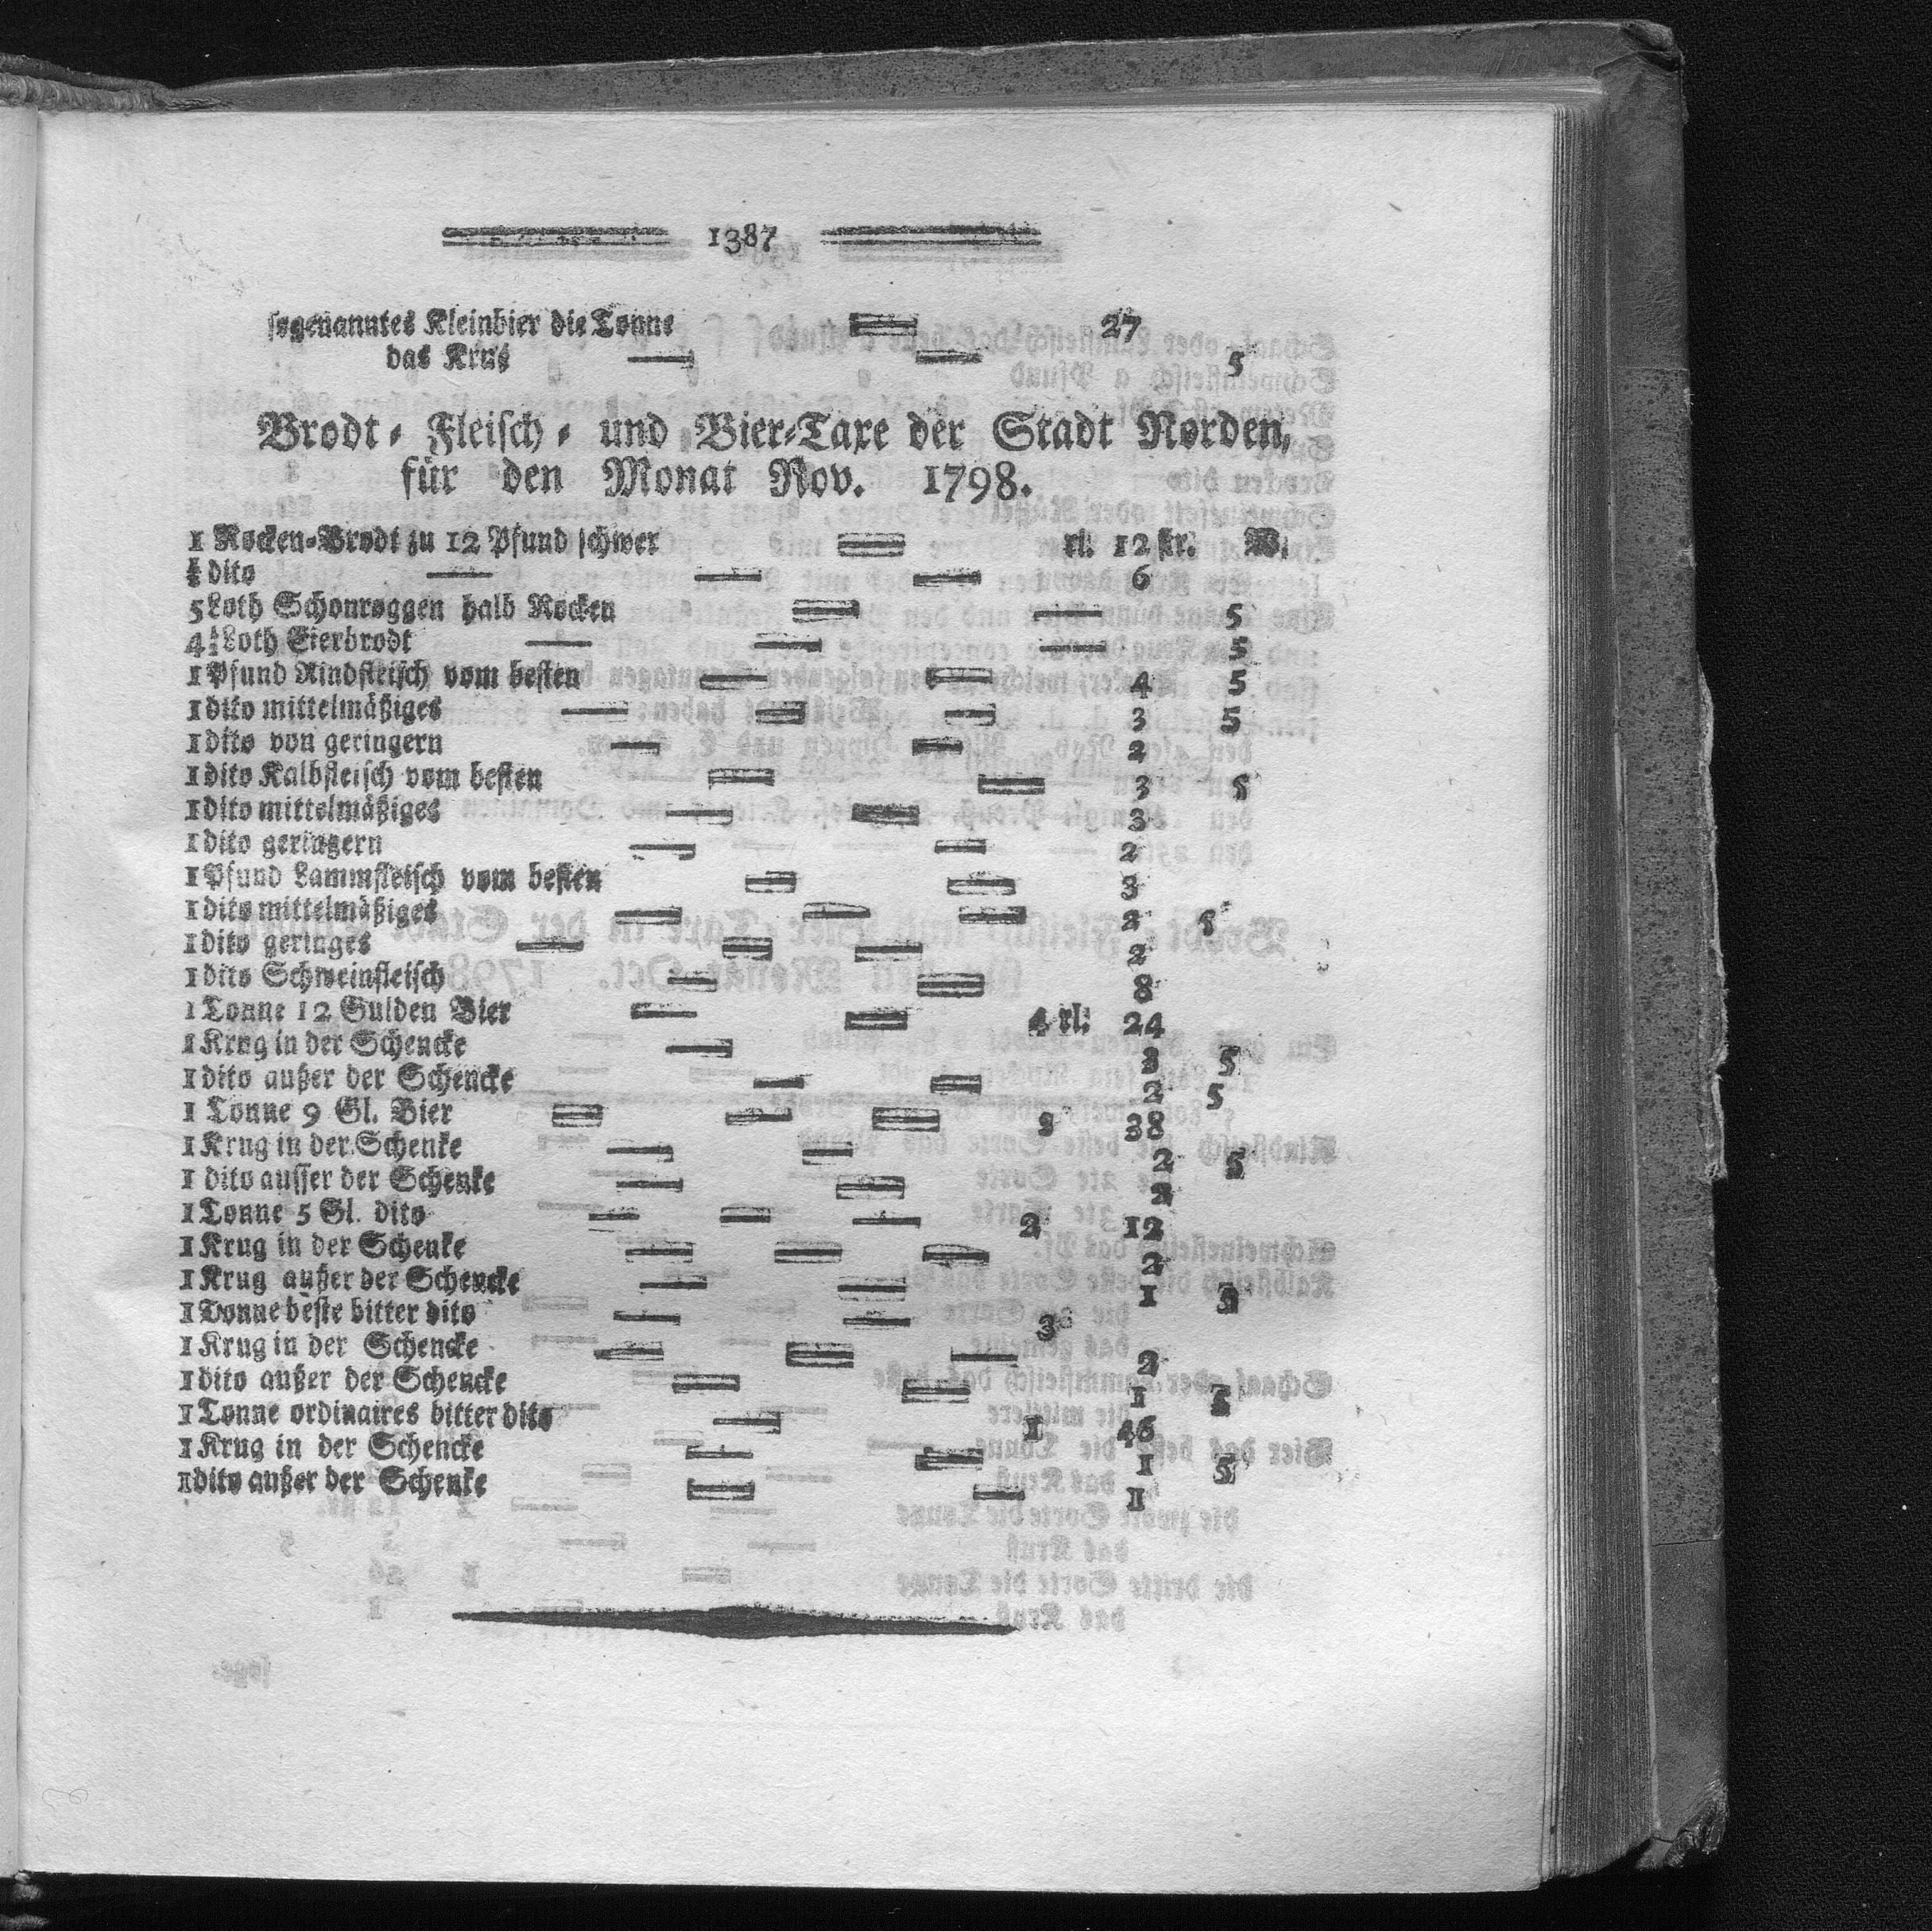 1387
sogenanntes Kleinbier die Tonne — 27
das Krus — — 5
Brodt- Fleisch- und Bier-Taxe der Stadt Norden,
für den Monat Nov. 1798.
1 Rocken-Brodt zu 12 Pfund schwer — rl. 12 str. W.
½ dito — — — 6
5 Loth Schonroggen halb Rocken — — 5
4½ Loth Eierbrodt — — — 5
1 Pfund Rindfleisch vom besten — — 4 5
1 dito mittelmäßiges — — — 3 5
1 dito von geringern — — 2
1 dito Kalbfleisch vom besten — — 3 5
1 dito mittelmäßiges — — 3
1 dito geringern — — 2
1 Pfund Lammfleisch vom besten — — 3
1 dito mittelmäßiges — — — 2 5
1 dito geringes — — — 2
1 dito Schweinfleisch — — 8
1 Tonne 12 Gulden Bier — — 4 rl. 24
1 Krug in der Schencke — 3 5
1 dito außer der Schencke — — 2 5
1 Tonne 9 Gl. Bier — — — 3 38
1 Krug in der Schenke — — 2 5
1 dito ausser der Schenke — — 2
1 Tonne 5 Gl. dito — — — 2 12
1 Krug in der Schenke — — — 2
1 Krug außer der Schencke — — 1 5
1 Tonne beste bitter dito — — 3
1 Krug in der Schencke — — — 2
1 dito außer der Schencke — — 1
1 Tonne ordinaires bitter dito — 1 46
1 Krug in der Schencke — — 1 5
1 dito außer der Schenke — — 1